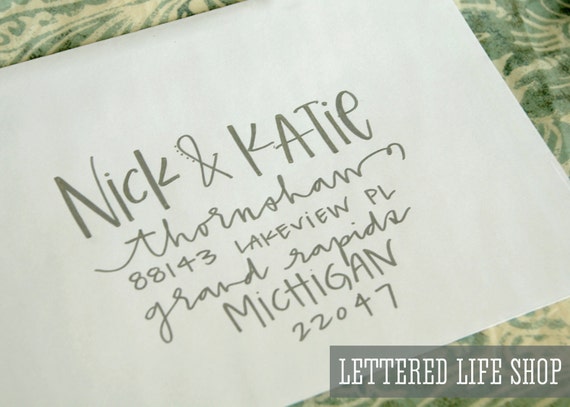 Nick & Katie
thornshaw
88143 LAKEVIEW PL
grand rapids
MICHIGAN
22047
LETTERED LIFE SHOP